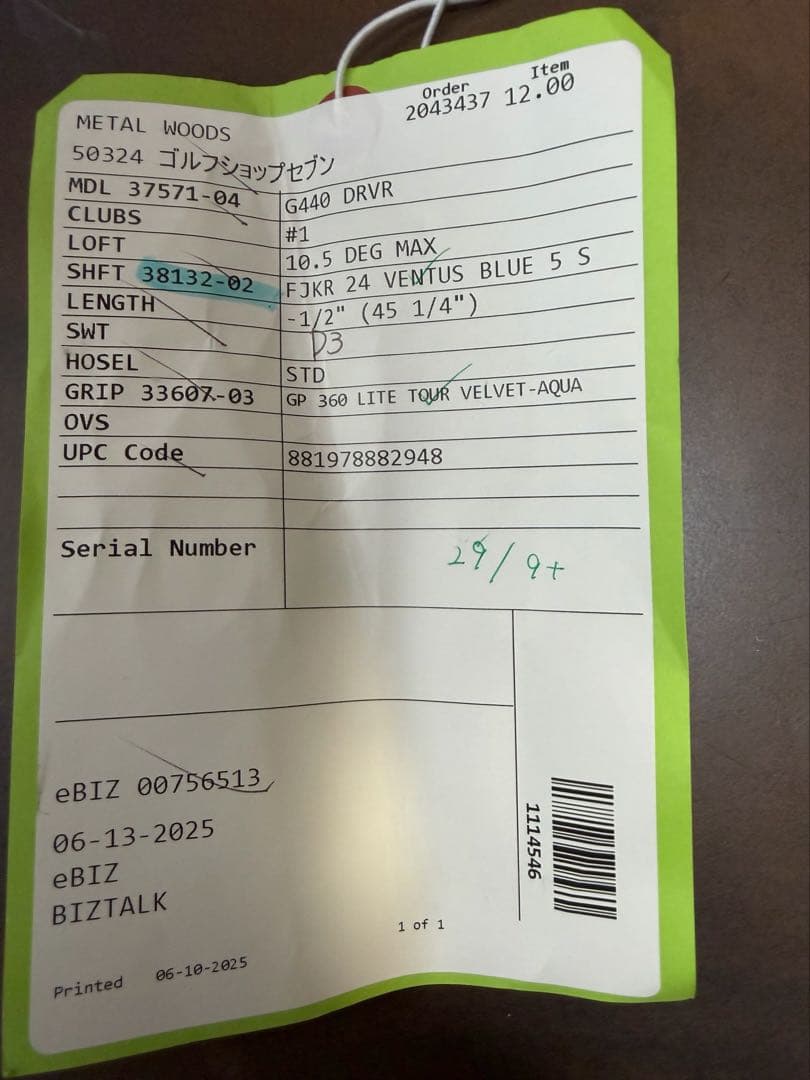 Order Item
2043437 12.00
METAL WOODS
50324 ゴルフショップセブン
MDL 37571-04 G440 DRVR
CLUBS #1
LOFT 10.5 DEG MAX
SHFT 38132-02 FJKR 24 VENTUS BLUE 5 S
LENGTH -1/2" (45 1/4")
SWT D3
HOSEL STD
GRIP 33607-03 GP 360 LITE TOUR VELVET-AQUA
OVS
UPC Code 881978882948
Serial Number 29/9+
eBIZ 00756513
06-13-2025
eBIZ
BIZTALK
1114546
1 of 1
Printed 06-10-2025